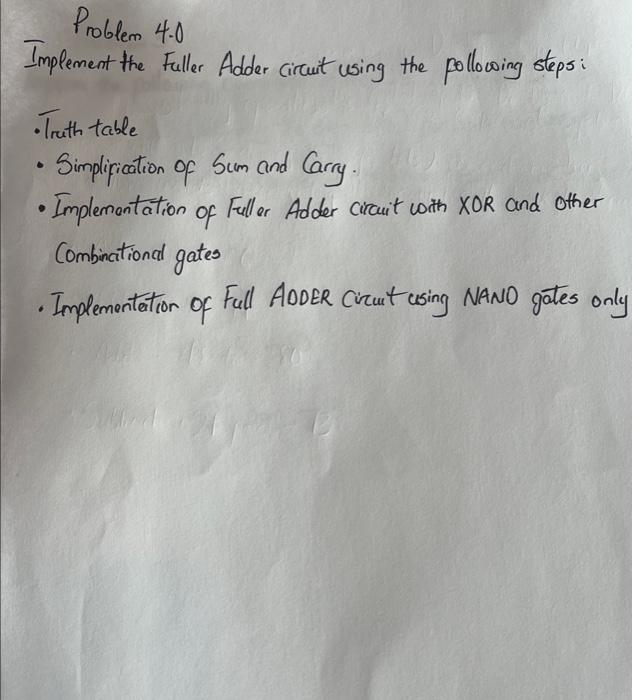 Problem 4.0
Implement the Fuller Adder circuit using the following steps:
• Truth table
• Simplification of Sum and Carry.
• Implementation of Fuller Adder circuit with XOR and other
Combinational gates
• Implementation of Full ADDER Circuit using NAND gates only